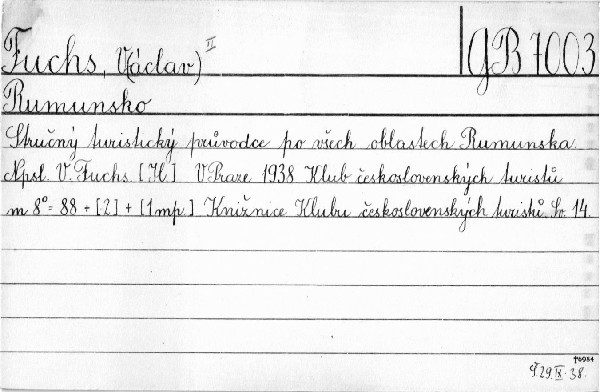 Fuchs, V(áclav) II GB 7003
Rumunsko
Stručný turistický průvodce po všech oblastech Rumunska.
Npsl. V. Fuchs. [H] V Praze 1938 Klub československých turistů
m 8° = 88 + [2] + [1 mp.] Knižnice Klubu československých turistů. Sv. 14.
76984
29.IX.38